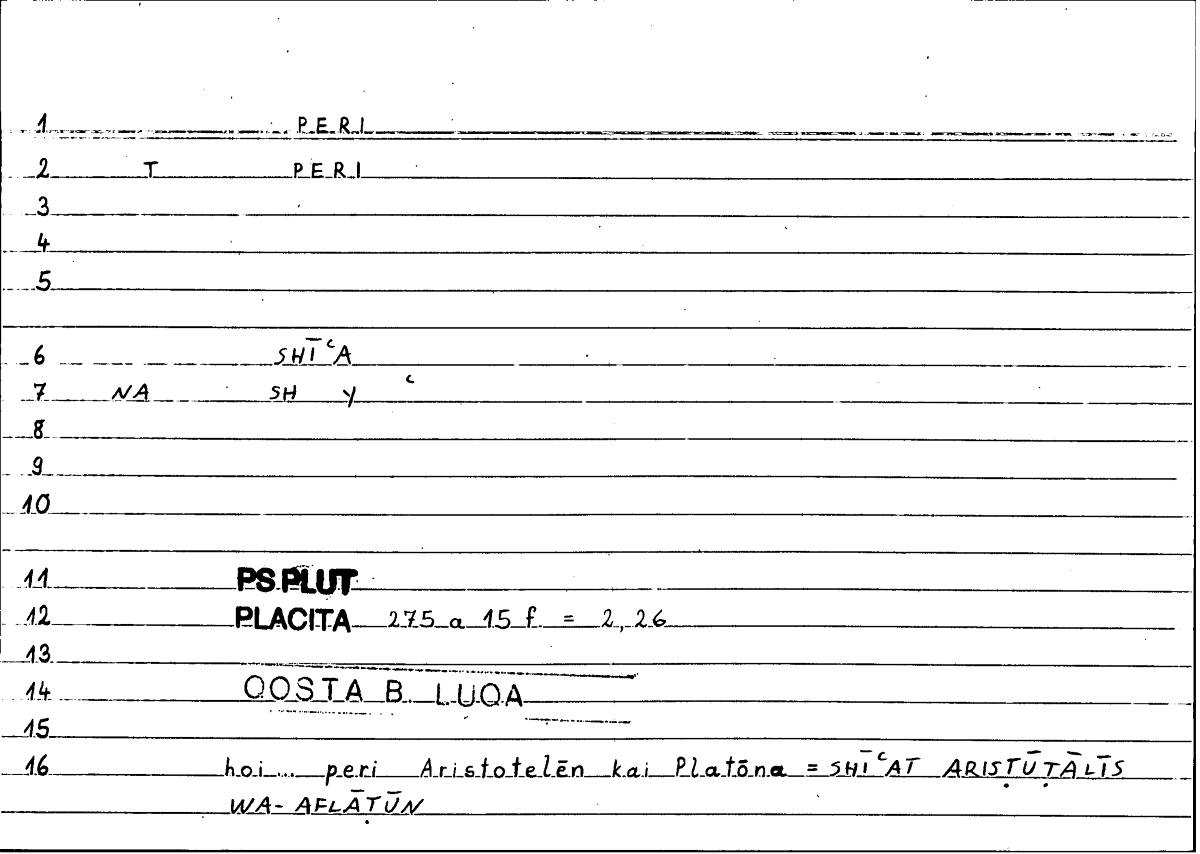 1 PERI
2 T PERI
3
4
5
6 SHĪʿA
7 NA SH Y ʿ
8
9
10
11 PS.PLUT
12 PLACITA 275 a 15 f. = 2,26
13
14 QOSTA B. LUQA
15
16 hoi... peri Aristotelēn kai Platōna = SHĪʿAT ARISṬŪṬĀLĪS
WA- AFLĀṬŪN